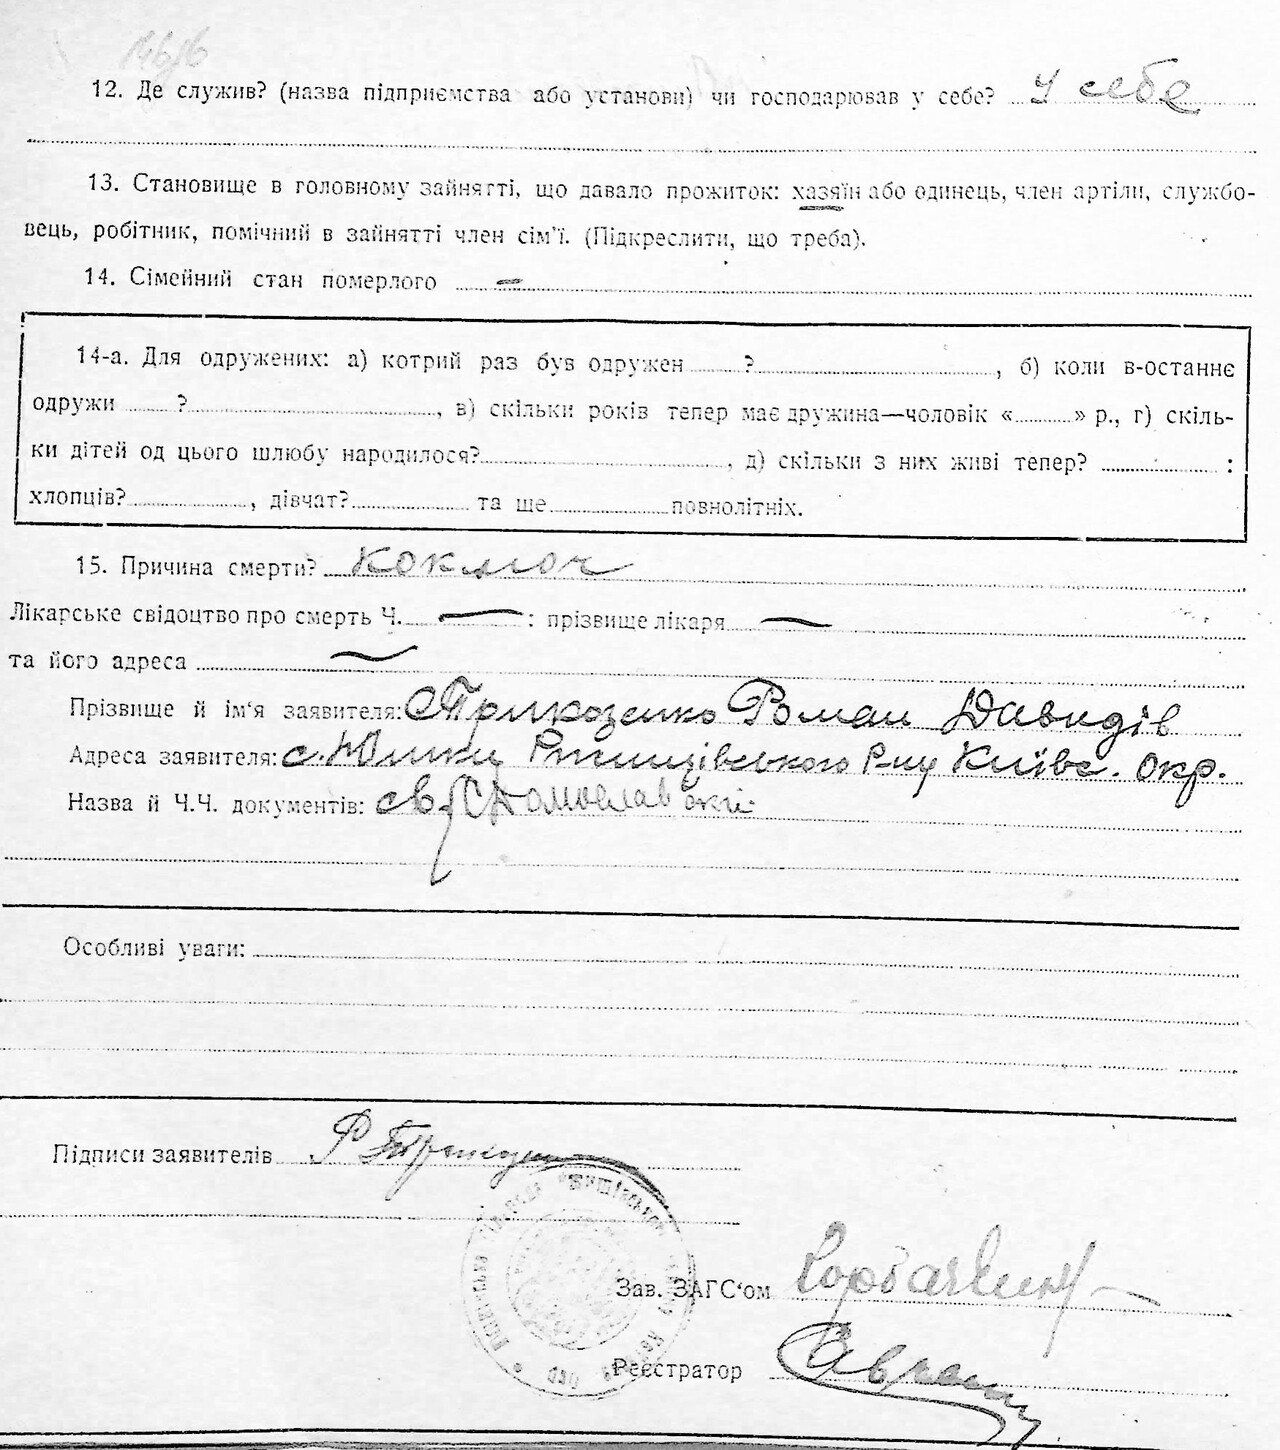 12. Де служив? (назва підприємства або установи) чи господарював у себе? У себе
13. Становище в головному зайнятті, що давало прожиток: хазяїн або одинець, член артіли, службо-
вець, робітник, помічний в зайнятті член сім'ї. (Підкреслити, що треба).
14. Сімейний стан померлого —
14-а. Для одружених: а) котрий раз був одружен ? , б) коли в-останнє
одружи ? , в) скільки років тепер має дружина—чоловік « » р., г) скіль-
ки дітей од цього шлюбу народилося? , д) скільки з них живі тепер? :
хлопців? , дівчат? та ще повнолітніх.
15. Причина смерти? коключ
Лікарське свідоцтво про смерть Ч. — : прізвище лікаря —
та його адреса —
Прізвище й ім'я заявителя: Трикозенко Роман Давидів
Адреса заявителя: с. Юшки Ржищівського Р-ну Київс. окр.
Назва й Ч.Ч. документів:
Особливі уваги:
Підписи заявителів
Зав. ЗАГС'ом
Реєстратор